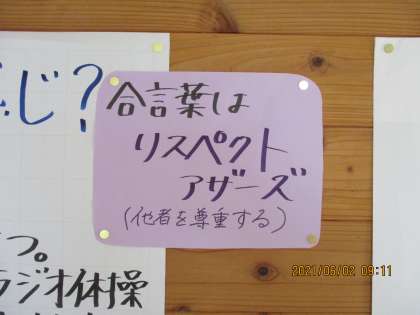 じ?
合言葉は
リスペクト
アザーズ
(他者を尊重する)
つ。
ラジオ体操
2021/06/02 09:11